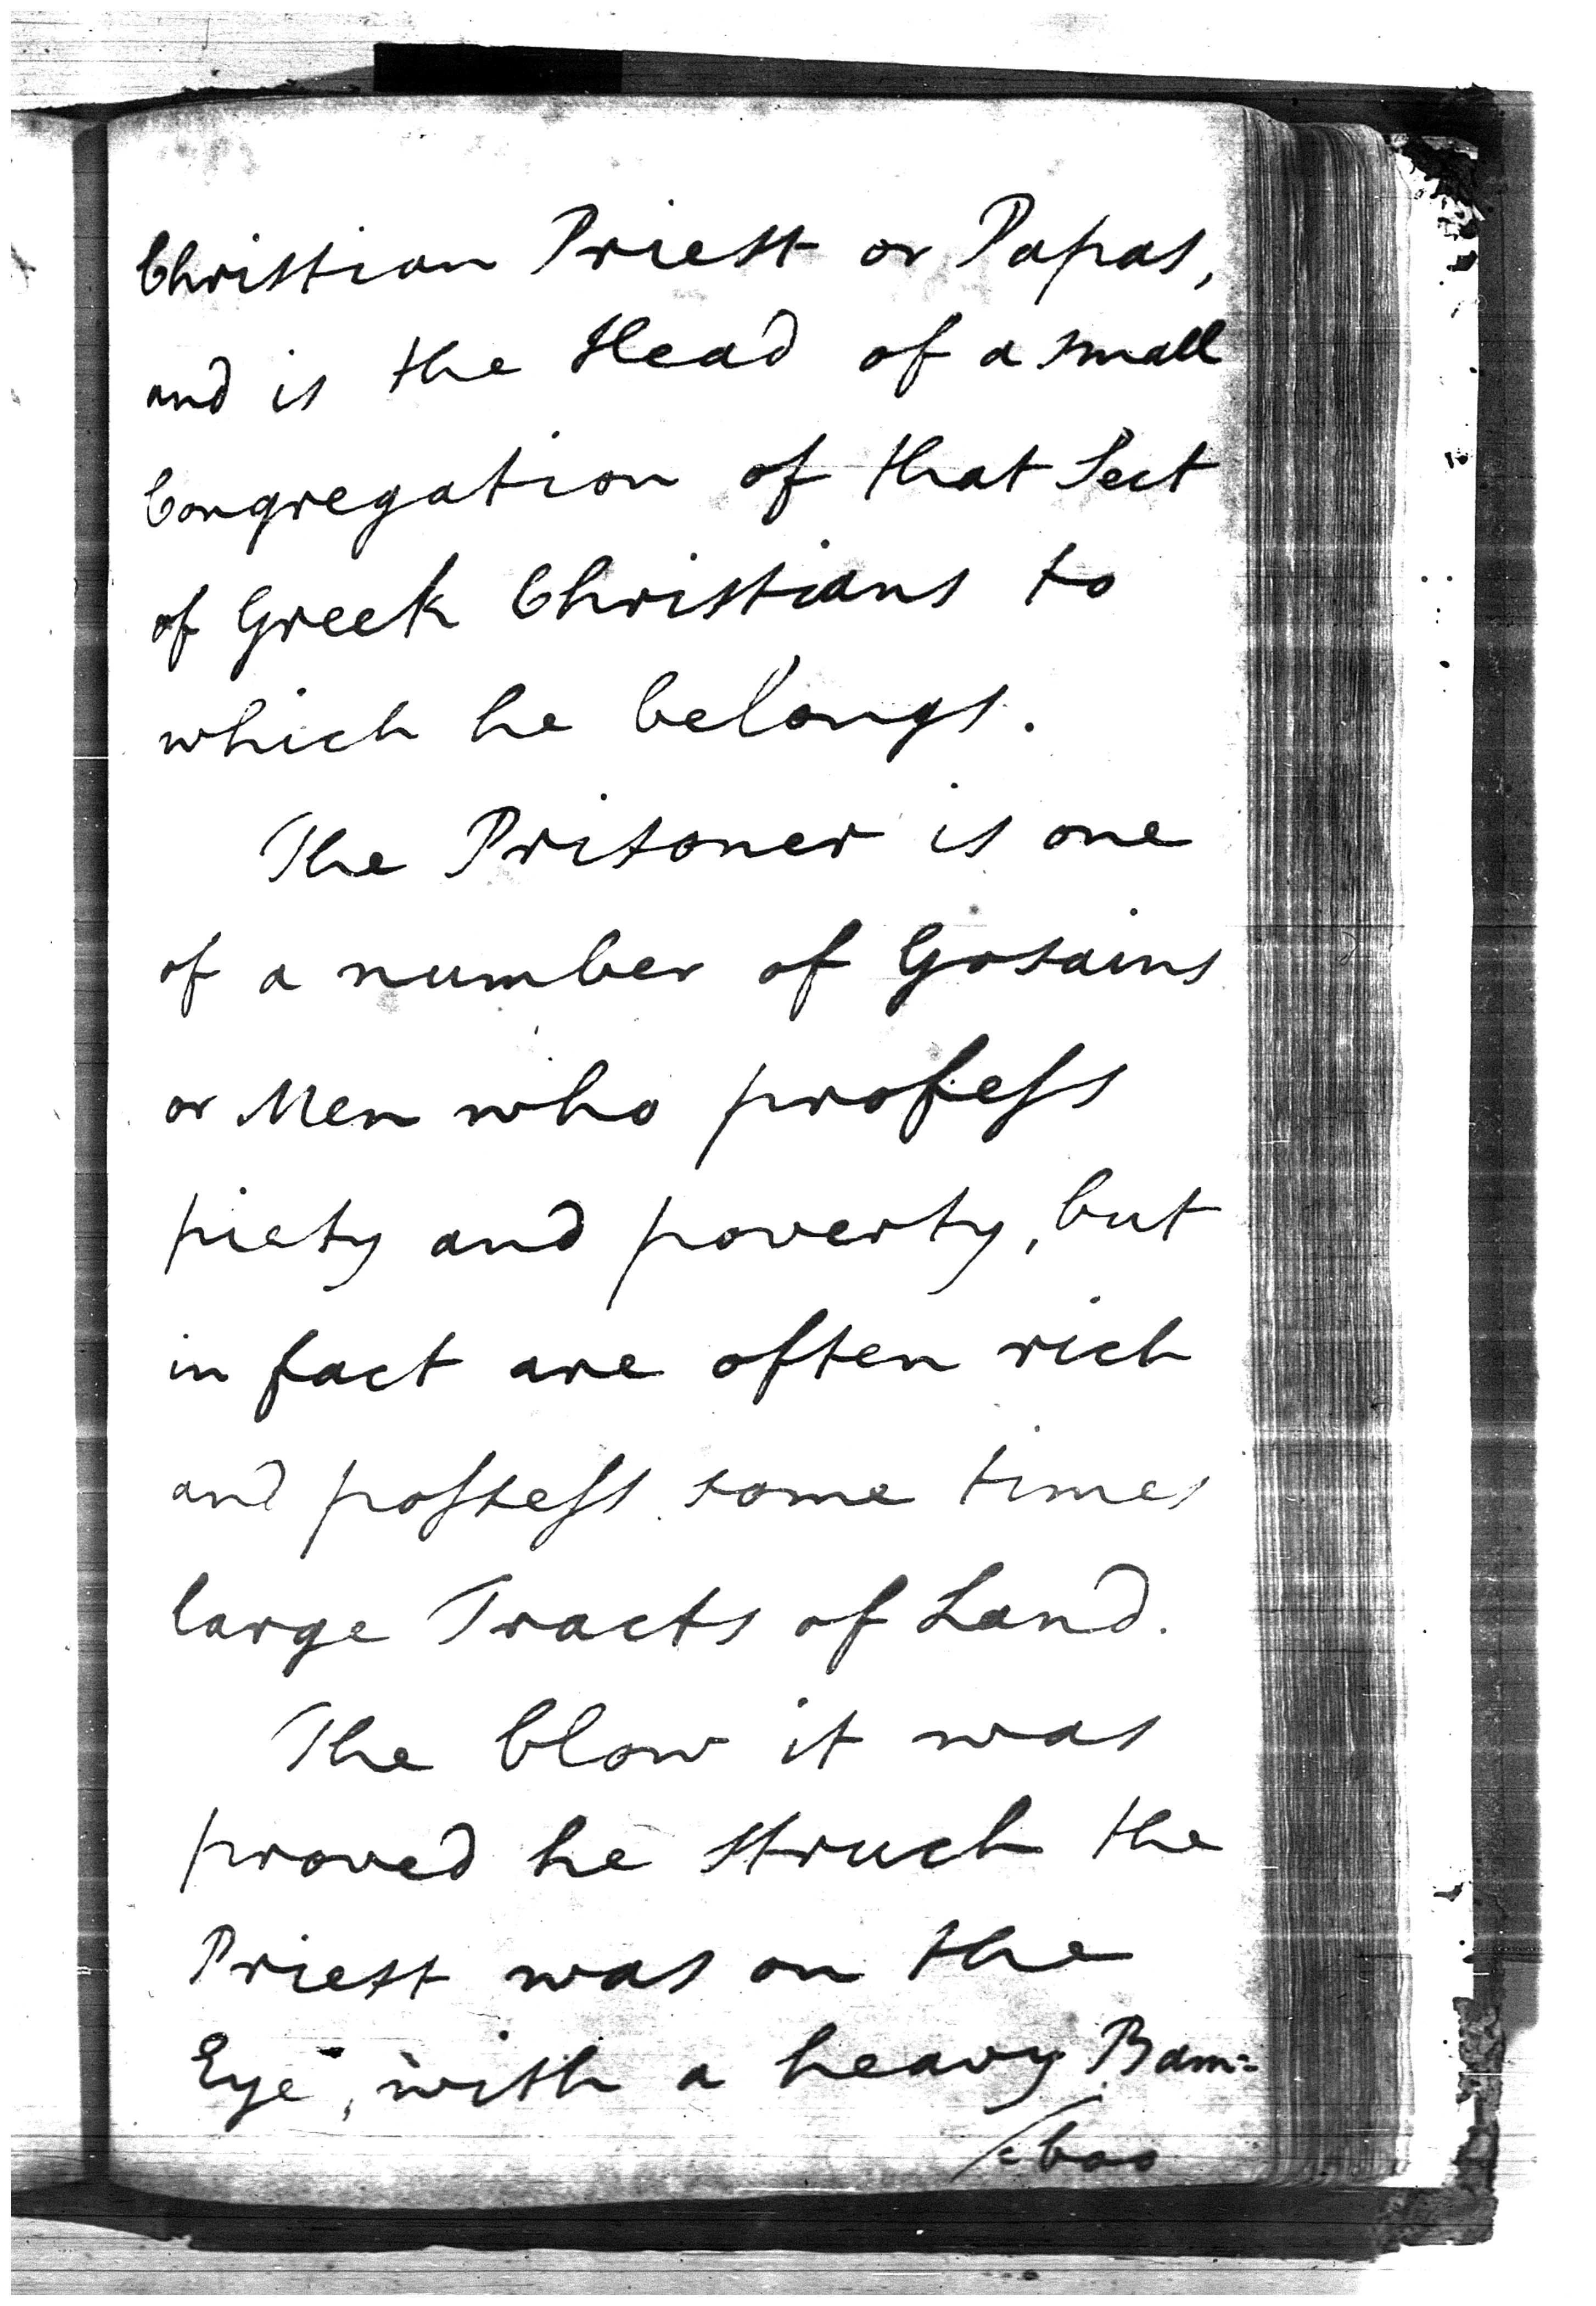 Christian Priest or Papas,
and is the Head of a small
Congregation of that Sect
of Greek Christians to
which he belongs.
The Prisoner is one
of a number of Gosains
or Men who profeſs
piety and poverty, but
in fact are often rich
and poſseſs some times
large Tracts of Land.
The blow it was
proved he struck the
Priest was on the
Eye, with a heavy Bam=
=boo